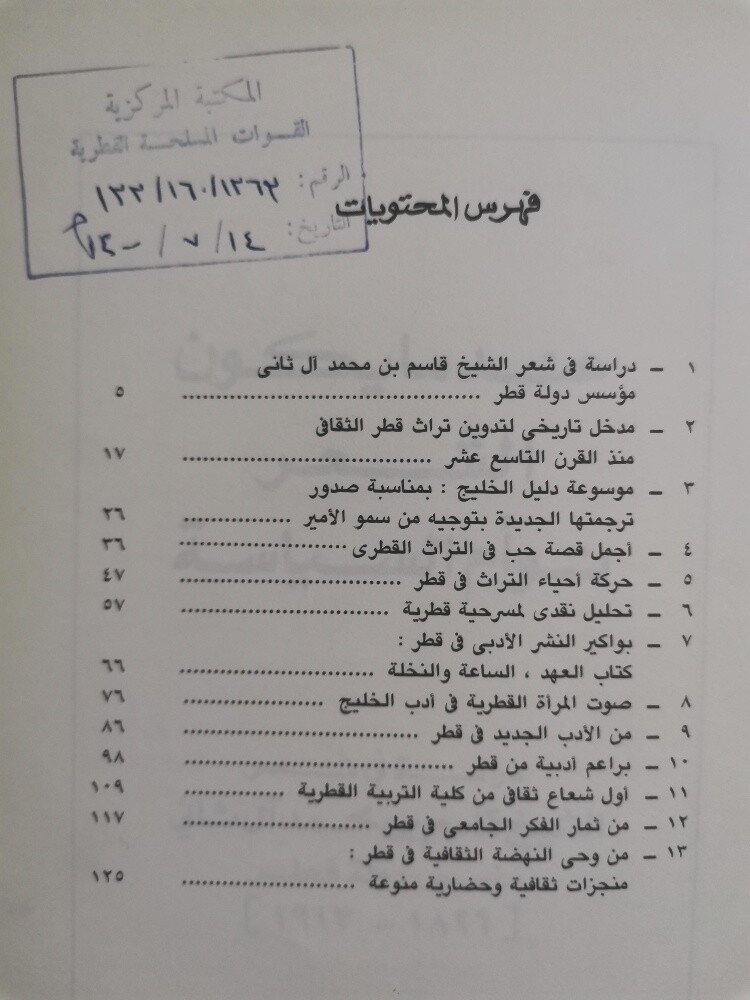 المكتبة المركزية
القوات المسلحة القطرية
الرقم: ١٣٣/١٦٠/١٣٦٣
التاريخ: ١٤ / ٧ / ١٤٠٠ م
فهرس المحتويات
١ ـ دراسة فى شعر الشيخ قاسم بن محمد آل ثانى
مؤسس دولة قطر ................................ ٥
٢ ـ مدخل تاريخى لتدوين تراث قطر الثقافى
منذ القرن التاسع عشر ................................ ١٧
٣ ـ موسوعة دليل الخليج : بمناسبة صدور
ترجمتها الجديدة بتوجيه من سمو الأمير ................ ٢٦
٤ ـ أجمل قصة حب فى التراث القطرى ........................ ٣٦
٥ ـ حركة أحياء التراث فى قطر ................................ ٤٧
٦ ـ تحليل نقدى لمسرحية قطرية ................................ ٥٧
٧ ـ بواكير النشر الأدبى فى قطر :
كتاب العهد ، الساعة والنخلة ............................ ٦٦
٨ ـ صوت المرأة القطرية فى أدب الخليج .................... ٧٦
٩ ـ من الأدب الجديد فى قطر ................................ ٨٦
١٠ ـ براعم أدبية من قطر .................................... ٩٨
١١ ـ أول شعاع ثقافى من كلية التربية القطرية ............... ١٠٩
١٢ ـ من ثمار الفكر الجامعى فى قطر ........................ ١١٧
١٣ ـ من وحى النهضة الثقافية فى قطر :
منجزات ثقافية وحضارية منوعة ........................ ١٢٥